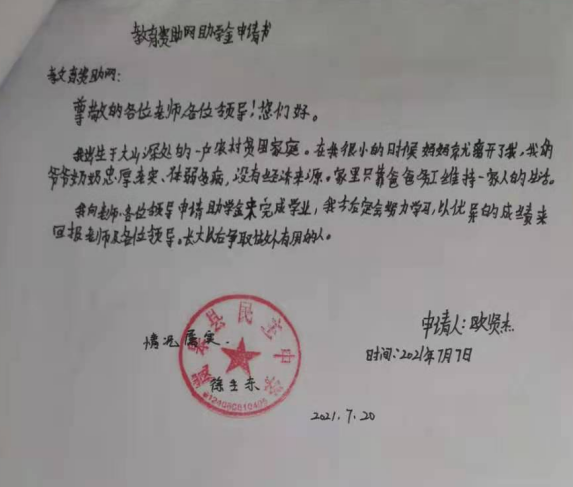 教育资助网助学金申请书
教育资助网：
尊敬的各位老师各位领导！您们好。
我出生于大山深处的一户农村贫困家庭。在我很小的时候妈妈就离开了我，我的
爷爷奶奶忠厚老实、体弱多病，没有经济来源。家里只靠爸爸务工维持一家人的生活。
我向老师、各位领导申请助学金来完成学业，我一定会努力学习，以优异的成绩来
回报老师及各位领导。长大以后争取做个有用的人。
申请人：欧贤杰
情况属实.
时间：2021年7月7日
县民主中
徐生东
2021.7.20